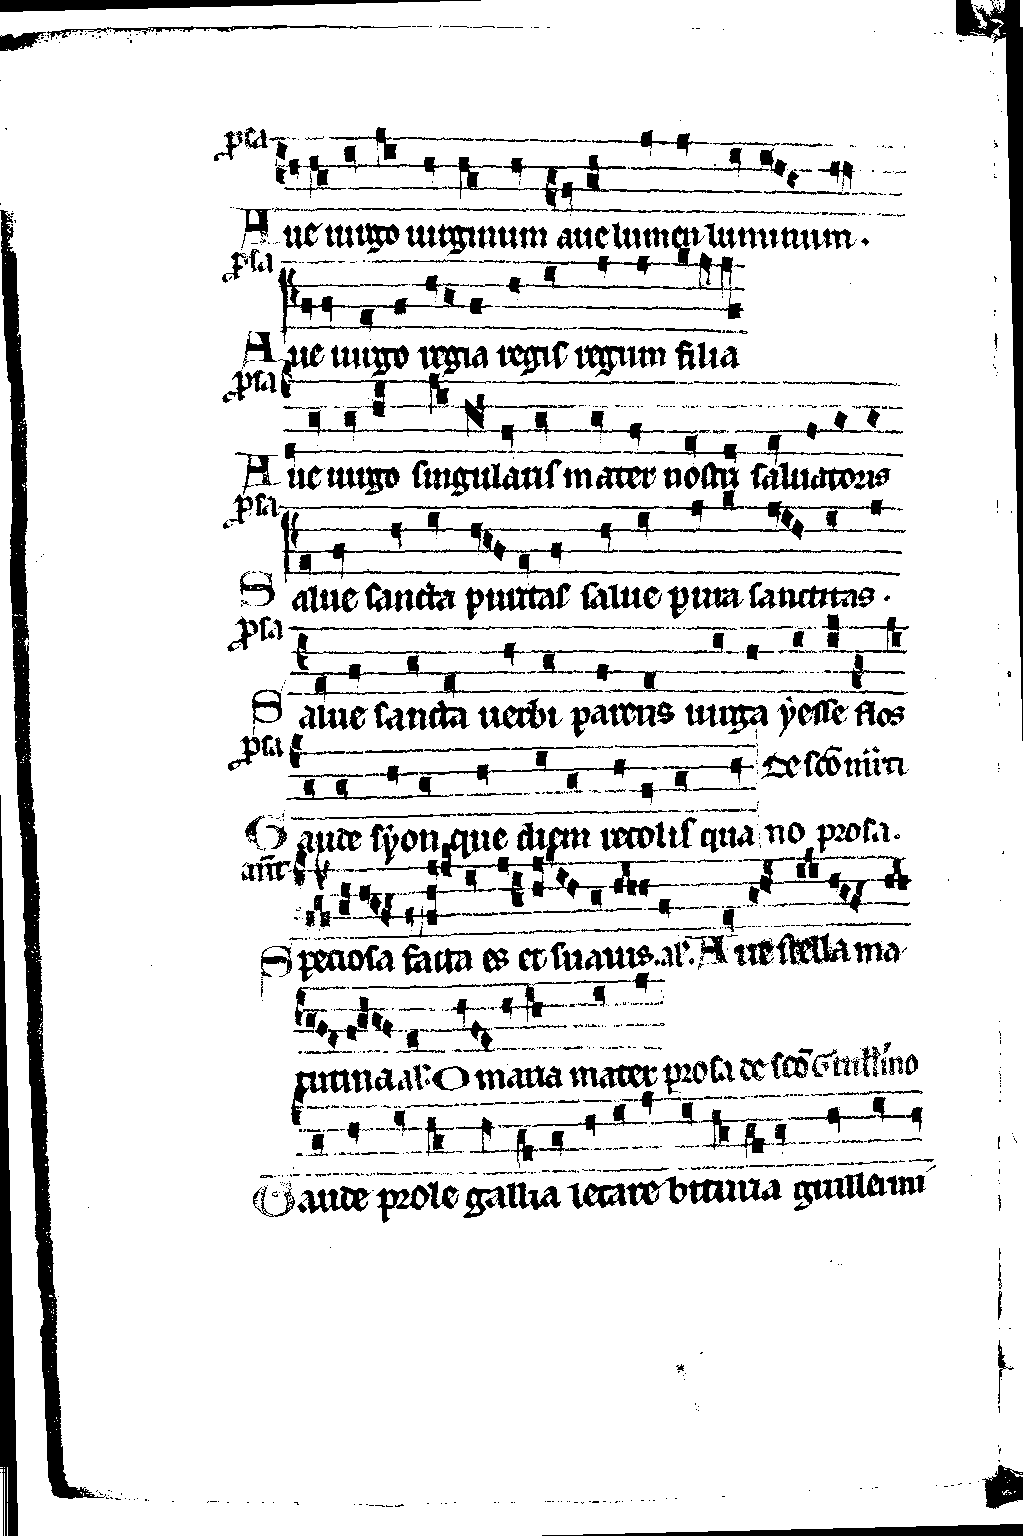 p̄sa
Aue uirgo uirginum aue lumen luminum.
p̄sa
Aue uirgo regia regis regum filia
p̄sa
Aue uirgo singularis mater nostri saluatoris
p̄sa
Salue sancta puritas salue pura sanctitas.
p̄sa
Salue sancta uerbi parens uirga yesse flos
p̄sa
De scō uiti
Gaude syon que diem recolis qua no prosa.
ant̄
Speciosa facta es et suauis. al'. Aue stella ma
tutina al'. O maria mater prosa de scō Guill'mo
Gaude prole gallia letare bituria guillermi